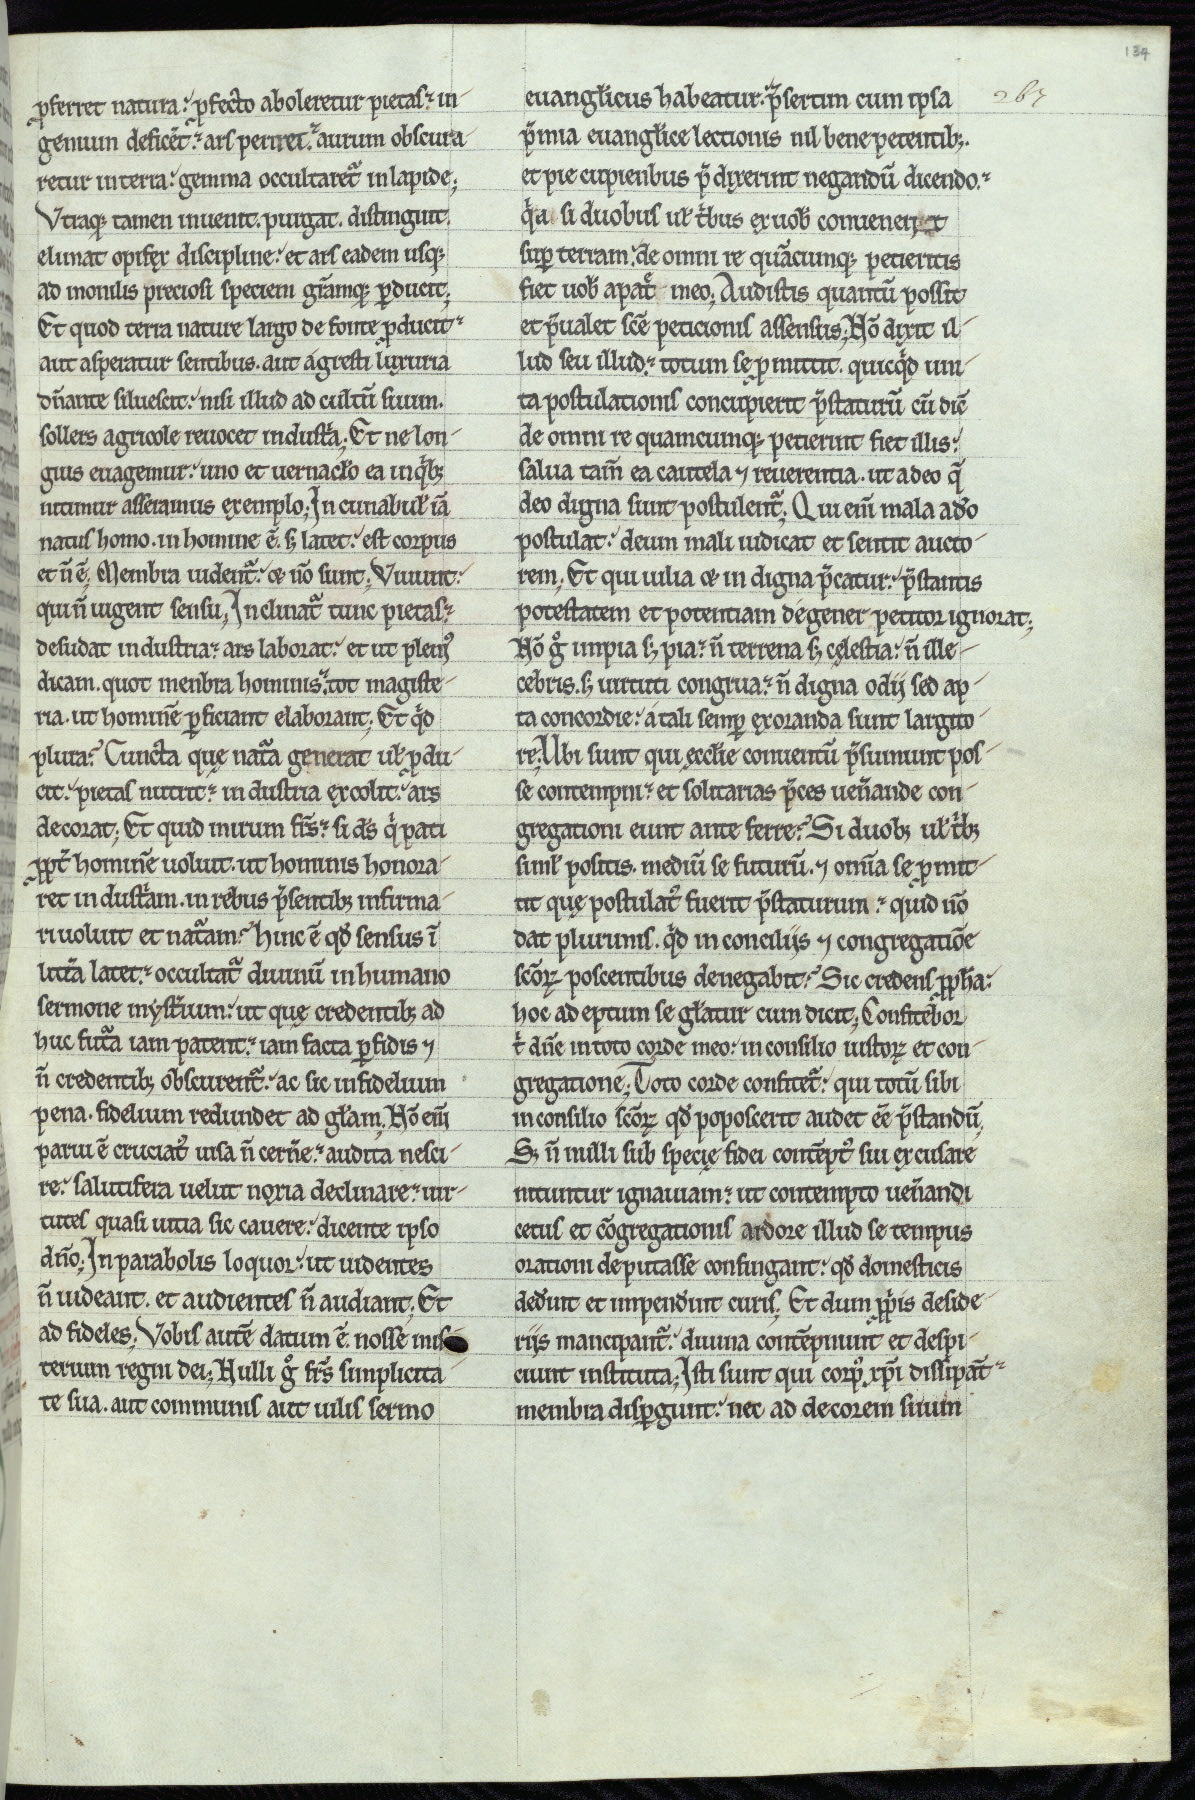 134
267
p̱ferret natura.' p̱fecto aboleretur pietas.' in-
genium defic̄et.' ars periret.' aurum obscura
retur in terra.' gemma occultaret᷑ in lapide;
Vtraq; tamen inuenit. purgat. distinguit.
elimat opifęx discipline.' et ars eadem usq;
ad monilis preciosi speciem gr̄amq; ꝑducit;
Et quod terra nature largo de fonte ꝓducit.'
aut asperatur sentibus. aut agresti luxuria
dn̄ante siluescit.' nisi illud ad cultū suum.
sollers agricole reuocet industⁱa; Et ne lon-
gius euagemur.' uno et uernaclo ea in qⁱb;
nitimur asseramus exemplo; In cunabul' iā
natus homo. in homine ē. s; latet.' est corpus
et n̄ ē; Membra uident᷑.' ⁊ n̄o sunt; Viuunt.'
qui n̄ uigent sensu; Inclinat᷑ tunc pietas.'
desudat industria.' ars laborat.' et ut pleni᷒
dicam. quot menbra hominis.' tot magiste-
ria. ut hominē ꝑficiant elaborant; Et qⁱd
plura.' Cuncta quę nat᷑a generat ul' ꝓdu-
cit.' pietas nutrit.' industria excolit.' ars
decorat; Et quid mirum fr̄s.' si d̄s qⁱ pati
ꝓpt̄ hominē uoluit. ut hominis honora-
ret industⁱam. in rebus p̄sentib; infirma-
ri uoluit et nat᷑am.' Hinc ē qd̄ sensus ī
litt᷑a latet.' occultat᷑ diuinū in humano
sermone myst̄ium.' ut quę credentib; ad
huc fut᷑a iam patent.' iam facta ꝑfidis ⁊
n̄ credentib; obscurent᷑.' ac sic infidelium
pena. fidelium redundet ad gl'am; Nō eni̅
parui ē cruciat᷒ uisa n̄ cern̄e.' audita nesci-
re.' salutifera uelut noxia declinare.' uir-
tutes quasi uitia sic cauere.' dicente ipso
dn̄o; In parabolis loquor.' ut uidentes
n̄ uideant. et audientes n̄ audiant; Et
ad fideles; Vobis autē datum ē. nosse mis-
terium regni dei; Nulli gͦ fr̄s simplicita-
te sua. aut communis aut uilis sermo
euangl'icus habeatur.' p̄sertim cum ipsa
p̄mia euangl'ice lectionis nil bene petentib;.
et pie cupienbus p̄dixerint negandū dicendo.'
qⁱa si duobus ul' tⁱbus ex uob̄ conuenerit
suꝑ terram.' de omni re quācumq; petieritis
fiet uob̄ a pat̄ meo; Audistis quantū possit
et p̄ualet sc̄e peticionis assensus; Nō dixit il-
lud seu illud.' totum se ꝓmittit. quicqⁱd uni-
ta postulationis concupierit p̄staturū cū diē
de omni re quamcumq; petierint fiet illis.'
salua tam̄ ea cautela ⁊ reuerentia. ut a deo q̄
deo digna sunt postulent᷑; Qui eni̅ mala a do
postulat.' deum mali iudicat et sentit aucto-
rem; Et qui uilia ⁊ indigna p̄catur.' p̄stantis
potestatem et potentiam degener petitor ignorat;
Nō gͦ impia s; pia.' n̄ terrena s; cęlestia.' n̄ ille-
cebris. s; uirtuti congrua.' n̄ digna odij sed ap-
ta concordie.' a tali semꝑ exoranda sunt largito-
re; Ubi sunt qui ęccl'ie conuentū p̄sumunt pos-
se contempni.' et solitarias p̄ces uen̄ande con-
gregationi eiunt ante ferre.' Si duob; ul' tⁱb;
simul' positis. mediū se futurū. ⁊ omīa se ꝓmit-
tit quę postulat᷒ fuerit p̄staturum.' quid n̄o
dat plurimis. qⁱd in concilijs ⁊ congregatiōe
sc̄oꝝ poscentibus denegabit.' Sic credens ꝓph̄a.'
hoc adeptum se gl'atur cum dicit; Confitebor
t̄ dn̄e in toto corde meo.' in consilio iustoꝝ et con-
gregatione; Toto corde confitet᷑.' qui totū sibi
in consilio sc̄oꝝ qd̄ poposcerit audet ēe p̄standū;
S; n̄ nulli sub specię fidei contēpt᷒ sui excusare
nituntur ignauiam.' ut contempto uen̄andi
cetus et cōgregationis ardore illud se tempus
orationi deputasse confingant.' qd̄ domesticis
ded̄unt et impend̄unt curis; Et dum ꝓpⁱis deside-
rijs mancipant᷑.' diuina contēpnunt et despi-
ciunt instituta; Isti sunt qui corp᷒ xp̄i dissipāt.'
membra disꝑgunt.' nec ad decorem suum